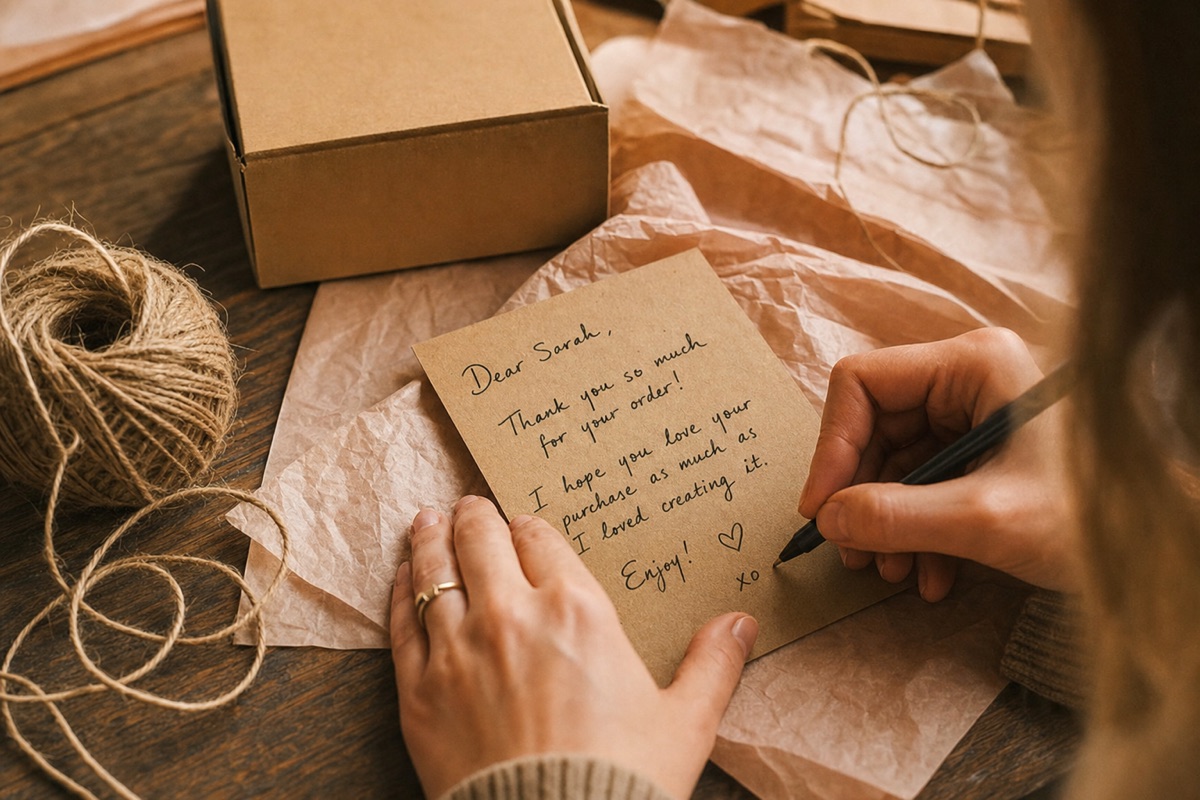 Dear Sarah,
Thank you so much
for your order!
I hope you love your
purchase as much as
I loved creating it.
Enjoy! ♡
xo